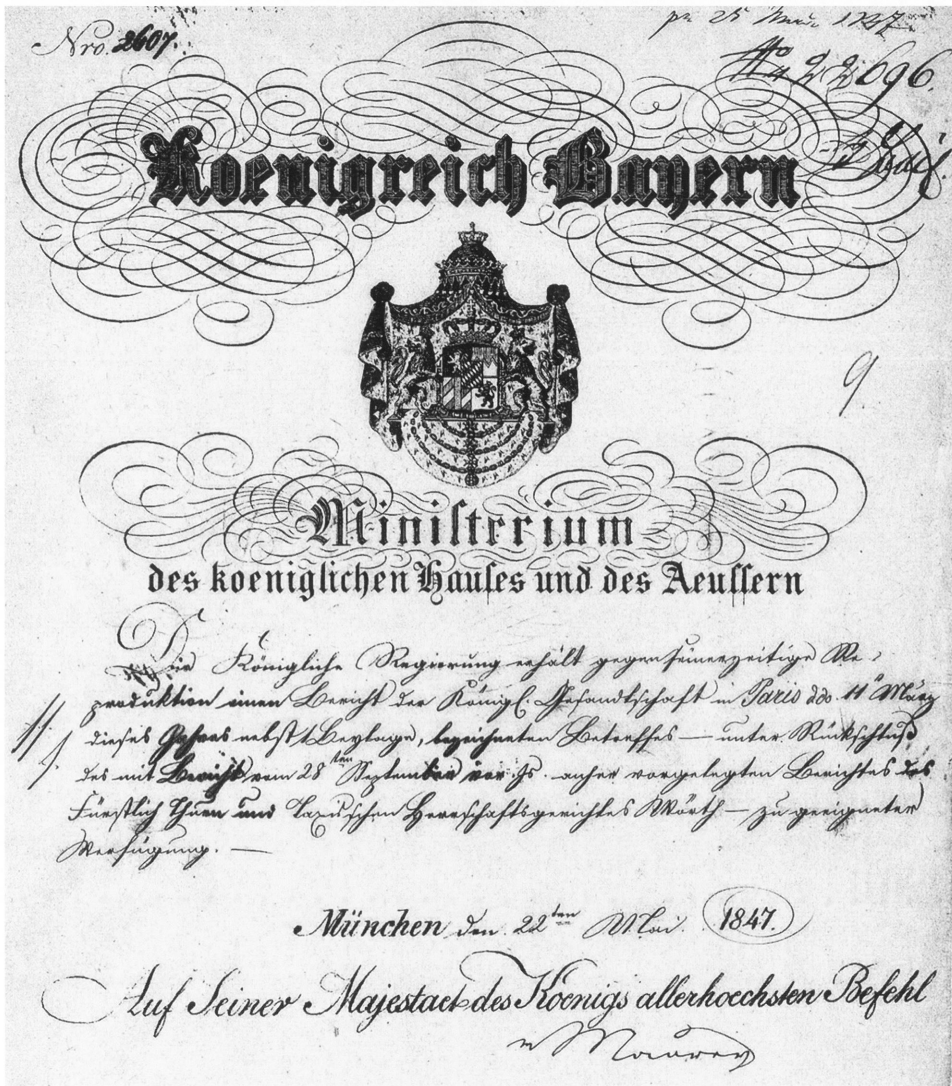 Nro. 2607.
22696.
Koenigreich Bayern
9
Ministerium
des koeniglichen Hauses und des Aeussern
Die Königliche Regierung erhält gegen seinerzeitige Re-
produktion einen Bericht der Königl. Gesandtschaft in Paris ddo. 11ten März
dieses Jahres nebst 1 Beylage, bezeichneten Betreffes — unter Rückschluß
des mit Bericht vom 28ten September vor. Js. anher vorgelegten Berichtes des
Fürstlich Thurn und Taxisschen Herrschaftsgerichtes Wörth — zu geeigneter
Verfügung. —
München den 22ten Mai. 1847.
Auf Seiner Majestaet des Koenigs allerhoechsten Befehl
v Maurer